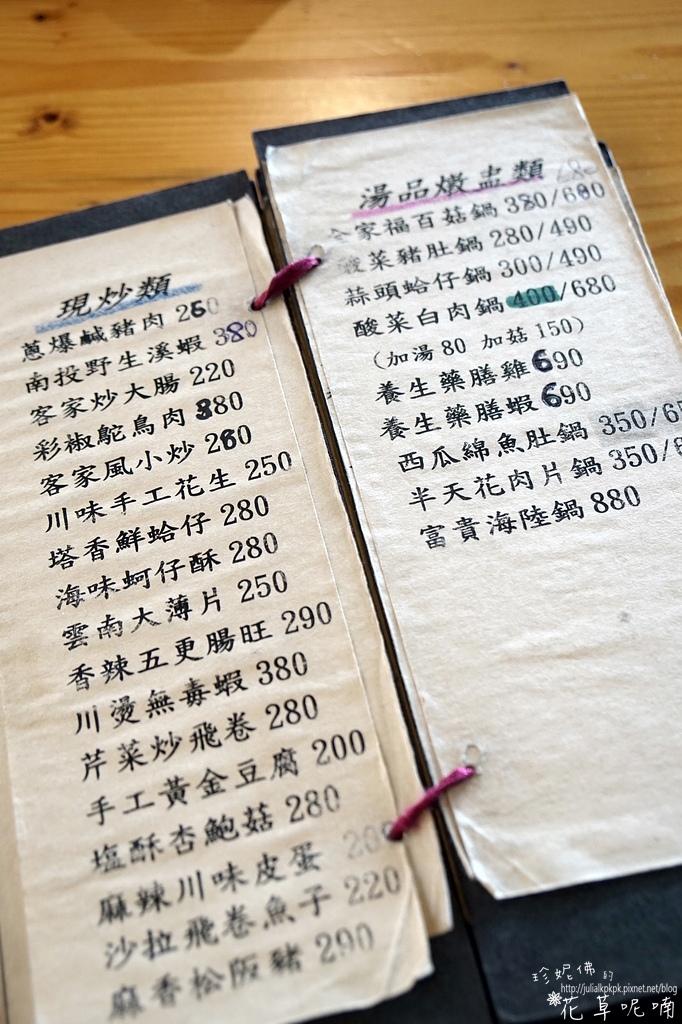 現炒類
蔥爆鹹豬肉 260
南投野生溪蝦 380
客家炒大腸 220
彩椒鴕鳥肉 380
客家風小炒 260
川味手工花生 250
塔香鮮蛤仔 280
海味蚵仔酥 280
雲南大薄片 250
香辣五更腸旺 290
川燙無毒蝦 380
芹菜炒飛卷 280
手工黃金豆腐 200
塩酥杏鮑菇 280
麻辣川味皮蛋 200
沙拉飛卷魚子 220
麻香松阪豬 290
湯品燉盅類
家福百菇鍋 380/680
菜豬肚鍋 280/490
蒜頭蛤仔鍋 300/490
酸菜白肉鍋 400/680
(加湯 80 加菇 150)
養生藥膳雞 690
養生藥膳蝦 690
西瓜綿魚肚鍋 350/
半天花肉片鍋 350/
富貴海陸鍋 880
珍妮佛的
http://julialkpkpk.pixnet.net/blog
花草呢喃